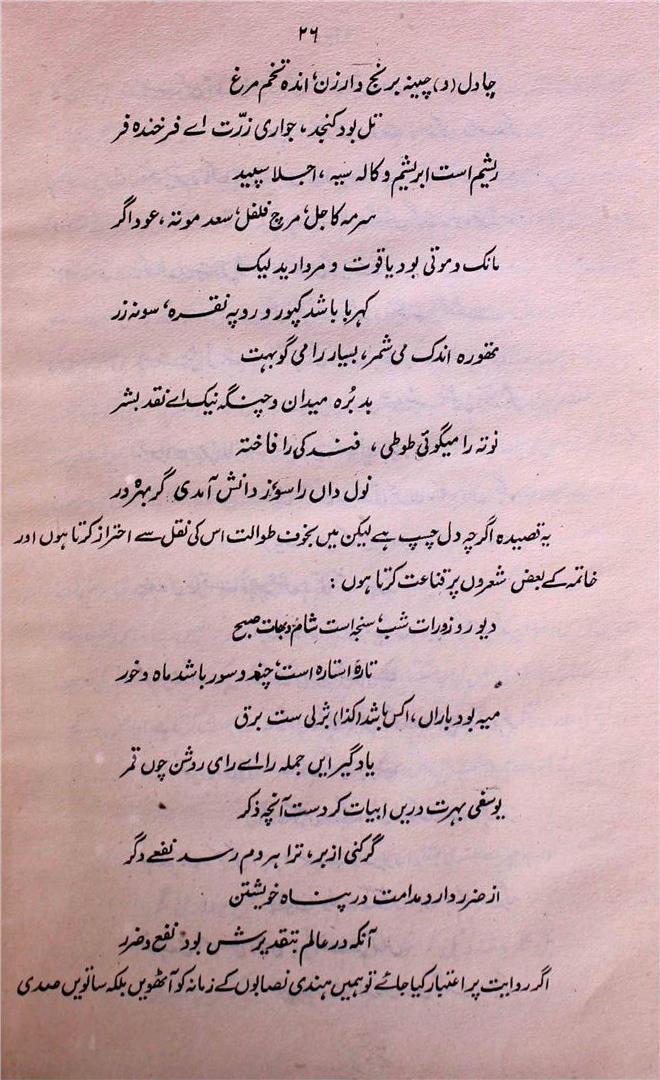 ۲۶
چاول (و) چینہ برنج و ارزن، اندہ تخم مرغ
تل بود کنجد، جواری زرّت اے فرخندہ فر
ریشم است ابریشم و کالہ سیہ، اجلا سپید
سرمہ کاجل، مرچ فلفل، سعد موتہ، عود اگر
مانک و موتی بود یاقوت و مروارید لیک
کہربا باشد کپور و روپہ نقرہ، سونہ زر
تھورہ اندک می شمر، بسیار را می گو بہت
بد بُرہ میدان و چنگہ نیک اے نقد بشر
توتہ را میگوئی طوطی، فند کی را فاختہ
نول داں راسو، ز دانش آمدی گر بہرہ ور
یہ قصیدہ اگرچہ دل چسپ ہے لیکن میں بخوف طوالت اس کی نقل سے احتراز کرتا ہوں اور
خاتمہ کے بعض شعروں پر قناعت کرتا ہوں :
دیو روز و رات شب، سنجہ است شام و بھات صبح
تارہ استارہ است، چند و سور باشد ماہ و خور
میہ بود باراں، اکس باشد (کذا) بزلی ست برق
یاد گیر ایں جملہ را اے رای روشن چوں قمر
یوسفی بہرت دریں ابیات کردست آنچہ ذکر
گر کنی از بر، ترا ہر دم رسد نفعے دگر
از ضرر دارد مدامت در پناہ خویشتن
آنکہ در عالم بتقدیرش بود نفع و ضرر
اگر روایت پر اعتبار کیا جائے تو ہمیں ہندی نصابوں کے زمانہ کو آٹھویں بلکہ ساتویں صدی